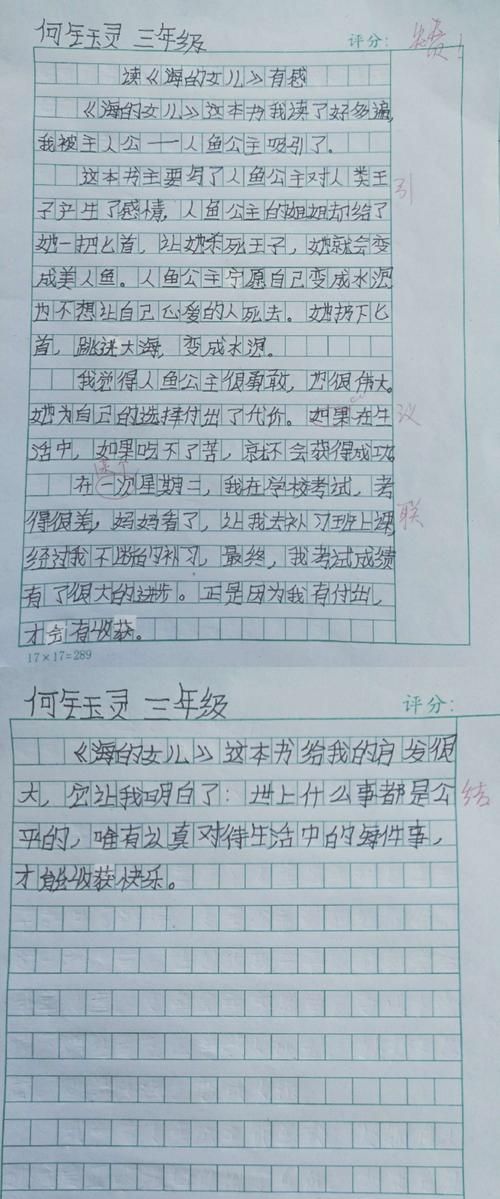 何钰灵 三年级 评分：赞！
读《海的女儿》有感
《海的女儿》这本书我读了好多遍，
我被主人公——人鱼公主吸引了。
这本书主要写了人鱼公主对人类王 引
子产生了感情，人鱼公主的姐姐却给了
她一把匕首，让她杀死王子，她就会变
成美人鱼。人鱼公主宁愿自己变成水泡
也不想让自己心爱的人死去。她扔下匕
首，跳进大海，变成水泡。
我觉得人鱼公主很勇敢，也很伟大。
她为自己的选择付出了代价。如果在生 议
活中，如果吃不了苦，就不会获得成功。
某个
在一次星期二，我在学校考试，考
得很差，妈妈看了，让我去补习班上课， 联
经过我不断的补习，最终，我考试成绩
有了很大的进步。正是因为我有付出，
才会有收获。
17×17=289
何钰灵 三年级 评分：
《海的女儿》这本书给我的启发很
大，它让我明白了：世上什么事都是公 结
平的，唯有认真对待生活中的每件事，
才能收获快乐。